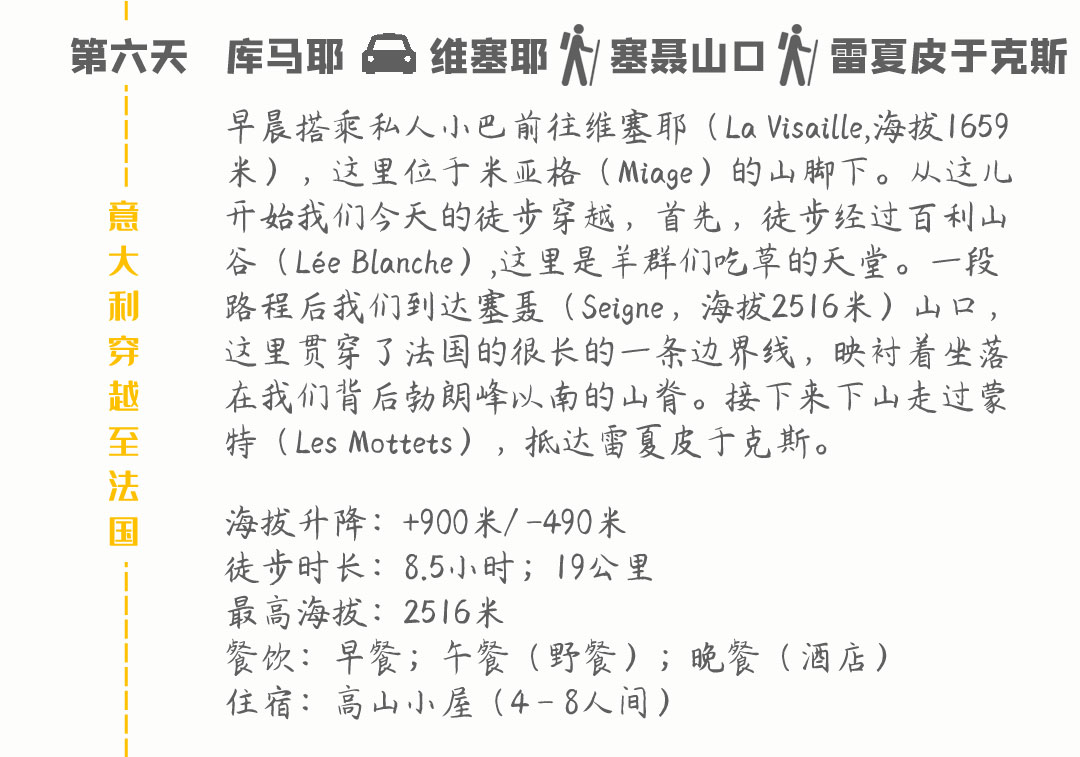 第六天 库马耶 维塞耶 塞聂山口 雷夏皮于克斯
意大利穿越至法国
早晨搭乘私人小巴前往维塞耶（La Visaille,海拔1659
米），这里位于米亚格（Miage）的山脚下。从这儿
开始我们今天的徒步穿越，首先，徒步经过百利山
谷（Lée Blanche）,这里是羊群们吃草的天堂。一段
路程后我们到达塞聂（Seigne，海拔2516米）山口，
这里贯穿了法国的很长的一条边界线，映衬着坐落
在我们背后勃朗峰以南的山脊。接下来下山走过蒙
特（Les Mottets），抵达雷夏皮于克斯。
海拔升降：+900米/ -490米
徒步时长：8.5小时；19公里
最高海拔：2516米
餐饮：早餐；午餐（野餐）；晚餐（酒店）
住宿：高山小屋（4-8人间）